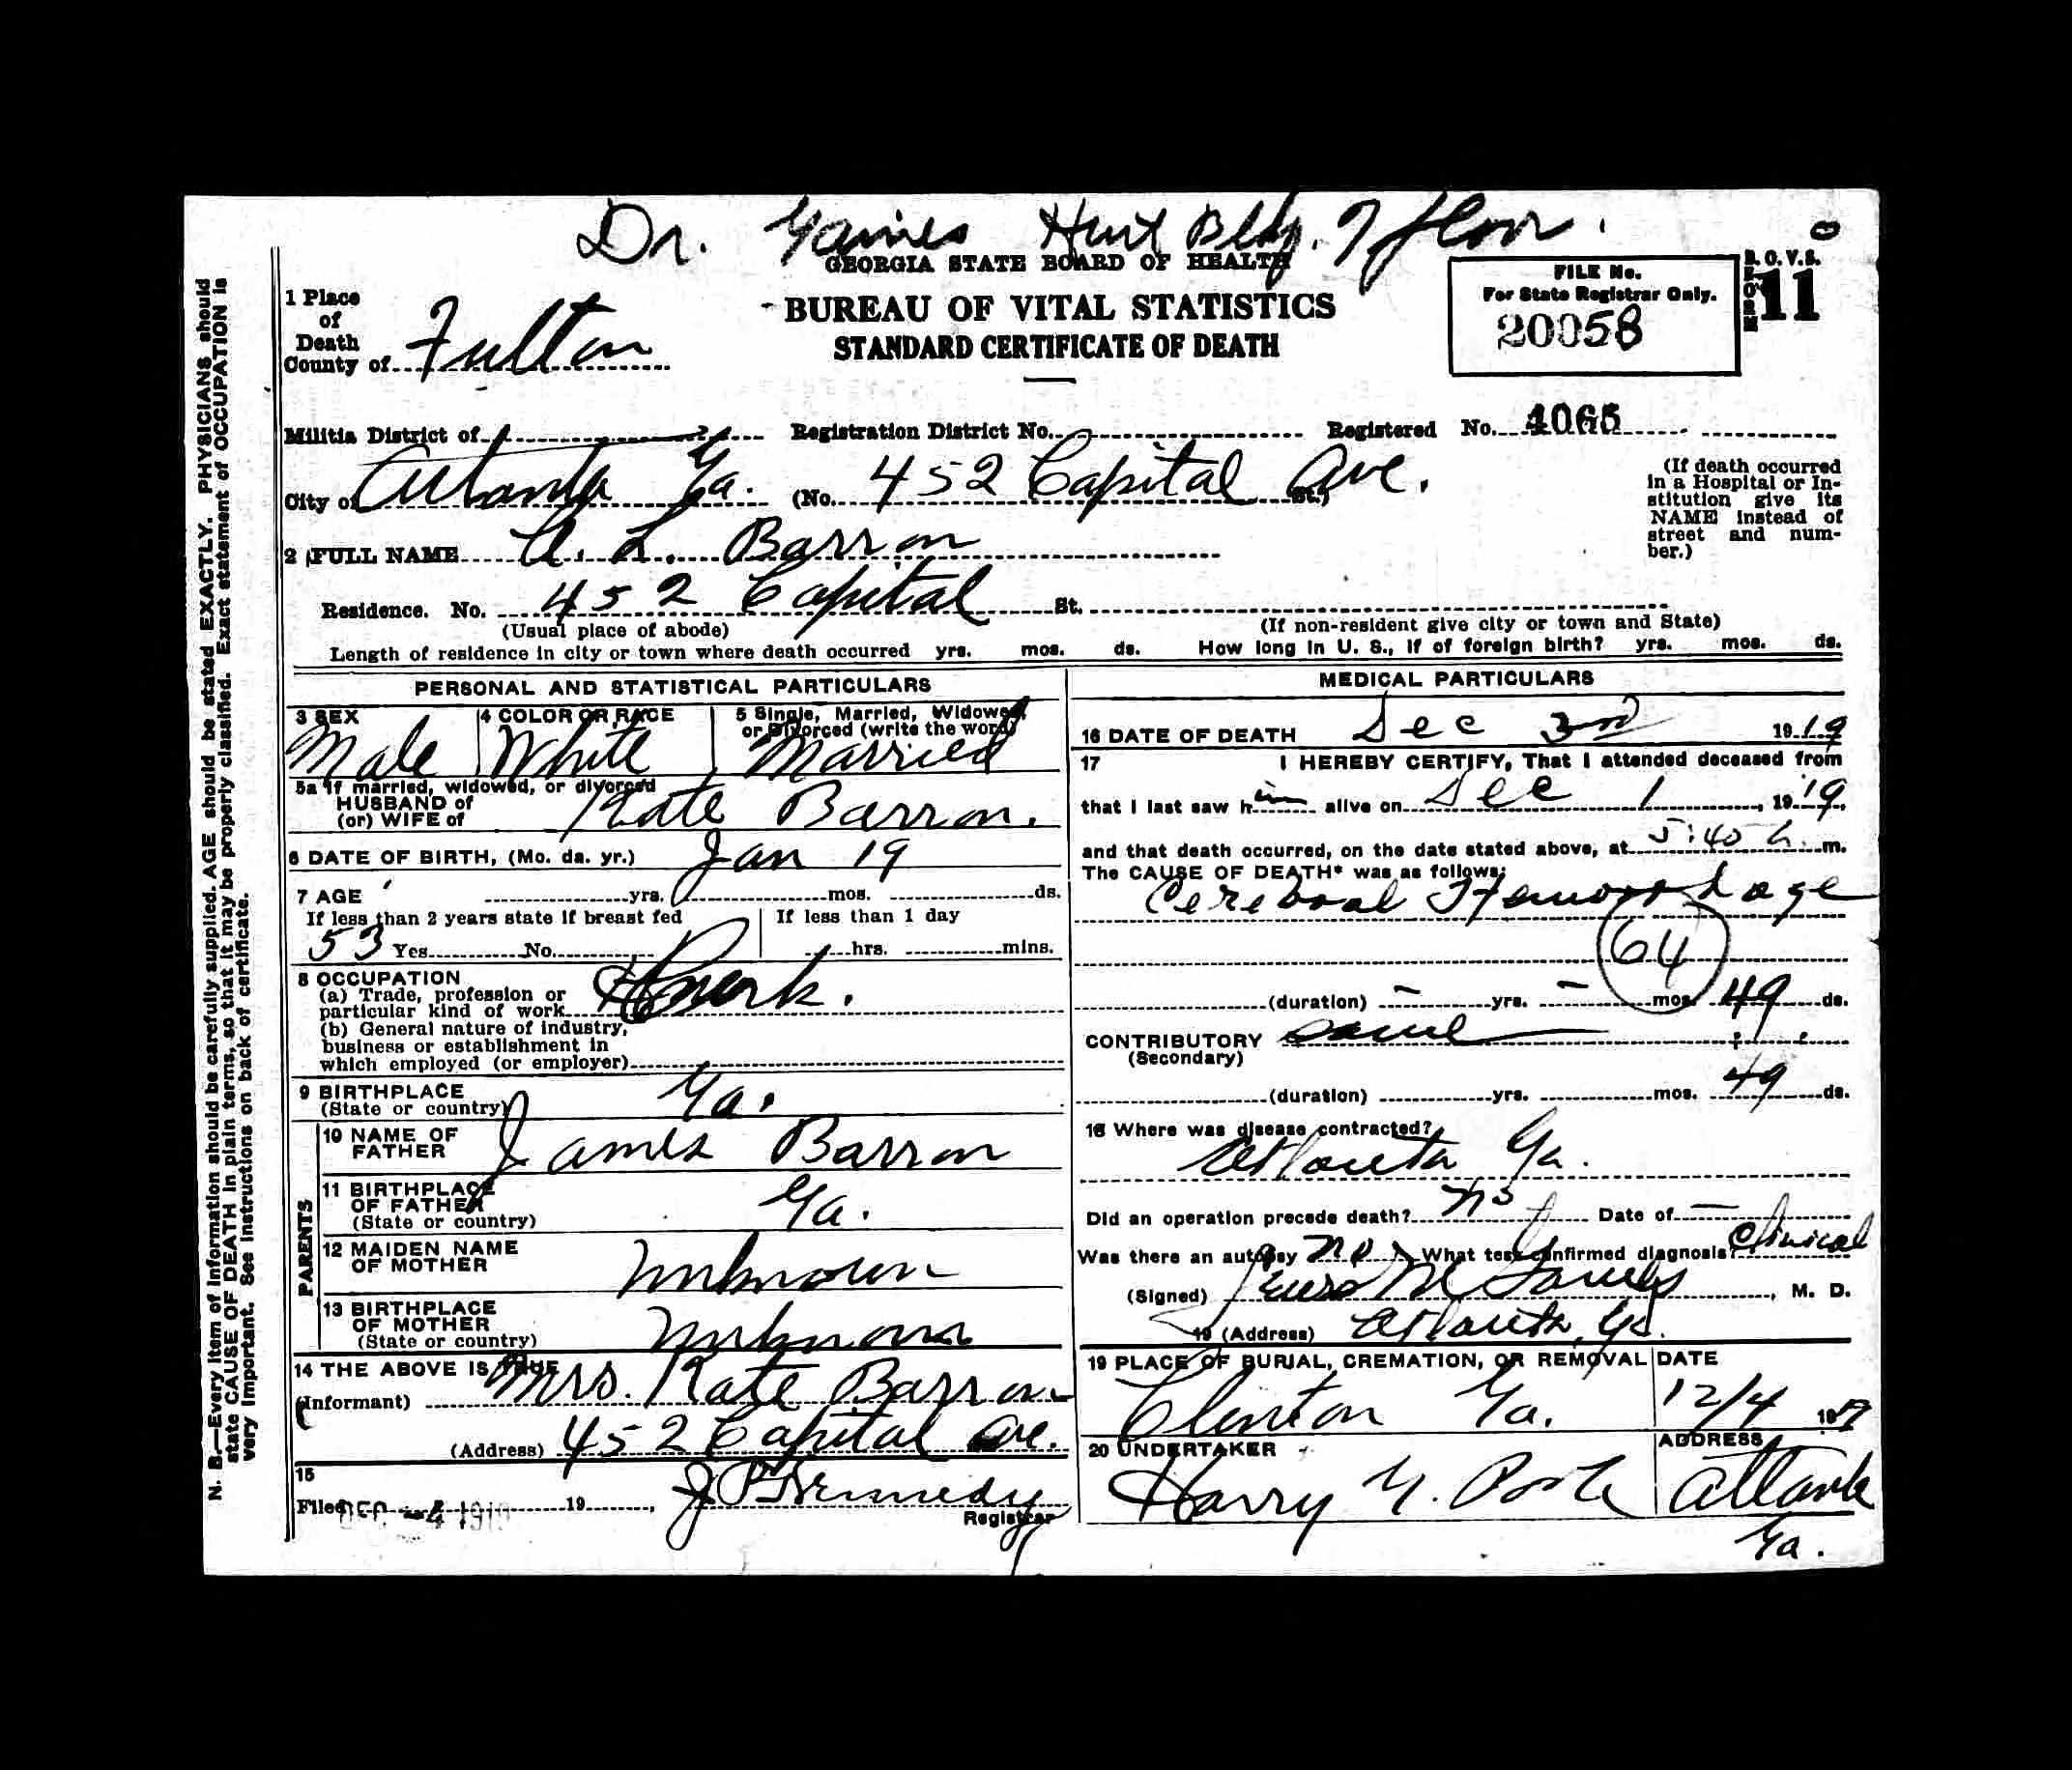 Dr. Gaines Hurt Bldg. 7 floor.
GEORGIA STATE BOARD OF HEALTH
BUREAU OF VITAL STATISTICS
STANDARD CERTIFICATE OF DEATH
FILE No.
For State Registrar Only.
20058
B. O. V. S.
FORM 11
1 Place
of
Death
County of Fulton
Militia District of Registration District No. Registered No. 4065
City of Atlanta Ga. (No. 452 Capital Ave. St.)
(If death occurred
in a Hospital or In-
stitution give its
NAME instead of
street and num-
ber.)
2 FULL NAME A. L. Barron
Residence. No. 452 Capital St.
(Usual place of abode) (If non-resident give city or town and State)
Length of residence in city or town where death occurred yrs. mos. ds. How long in U. S., if of foreign birth? yrs. mos. ds.
PERSONAL AND STATISTICAL PARTICULARS
3 SEX 4 COLOR OR RACE 5 Single, Married, Widowed,
or Divorced (write the word)
Male White Married
5a If married, widowed, or divorced
HUSBAND of
(or) WIFE of Kate Barron.
6 DATE OF BIRTH, (Mo. da. yr.) Jan 19
7 AGE yrs. mos. ds.
If less than 2 years state if breast fed If less than 1 day
53 Yes No hrs. mins.
8 OCCUPATION
(a) Trade, profession or
particular kind of work
(b) General nature of industry,
business or establishment in
which employed (or employer)
9 BIRTHPLACE
(State or country) Ga.
PARENTS
10 NAME OF
FATHER James Barron
11 BIRTHPLACE
OF FATHER
(State or country) Ga.
12 MAIDEN NAME
OF MOTHER Unknown
13 BIRTHPLACE
OF MOTHER
(State or country) Unknown
14 THE ABOVE IS TRUE
(Informant) Mrs. Kate Barron
(Address) 452 Capital Ave.
15
Filed DEC -4 1919 19 , J P Kennedy
Registrar
MEDICAL PARTICULARS
16 DATE OF DEATH Dec 3rd 1919
17 I HEREBY CERTIFY, That I attended deceased from
that I last saw him alive on Dec 1, 1919
and that death occurred, on the date stated above, at 5:40 m.
The CAUSE OF DEATH* was as follows:
Cerebral Hemorrhage
64
(duration) – yrs. – mos. 49 ds.
CONTRIBUTORY same
(Secondary)
(duration) yrs. mos. 49 ds.
18 Where was disease contracted?
Atlanta Ga.
Did an operation precede death? no Date of –
Was there an autopsy no What test confirmed diagnosis? Clinical
(Signed) M. D.
19 (Address) Atlanta, Ga.
19 PLACE OF BURIAL, CREMATION, OR REMOVAL DATE
Clinton Ga. 12/4 1919
20 UNDERTAKER ADDRESS
Harry G. Poole Atlanta
Ga.
N. B.—Every item of information should be carefully supplied. AGE should be stated EXACTLY. PHYSICIANS should
state CAUSE OF DEATH in plain terms, so that it may be properly classified. Exact statement of OCCUPATION is
very important. See instructions on back of certificate.